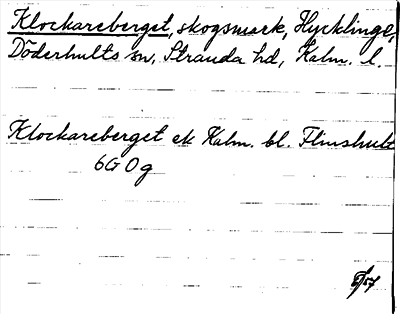 Klockareberget, skogsmark, Hycklinge,
Döderhults sn, Stranda hd, Kalm. l.
Klockareberget ek Kalm. bl. Flinshult
6G 0g